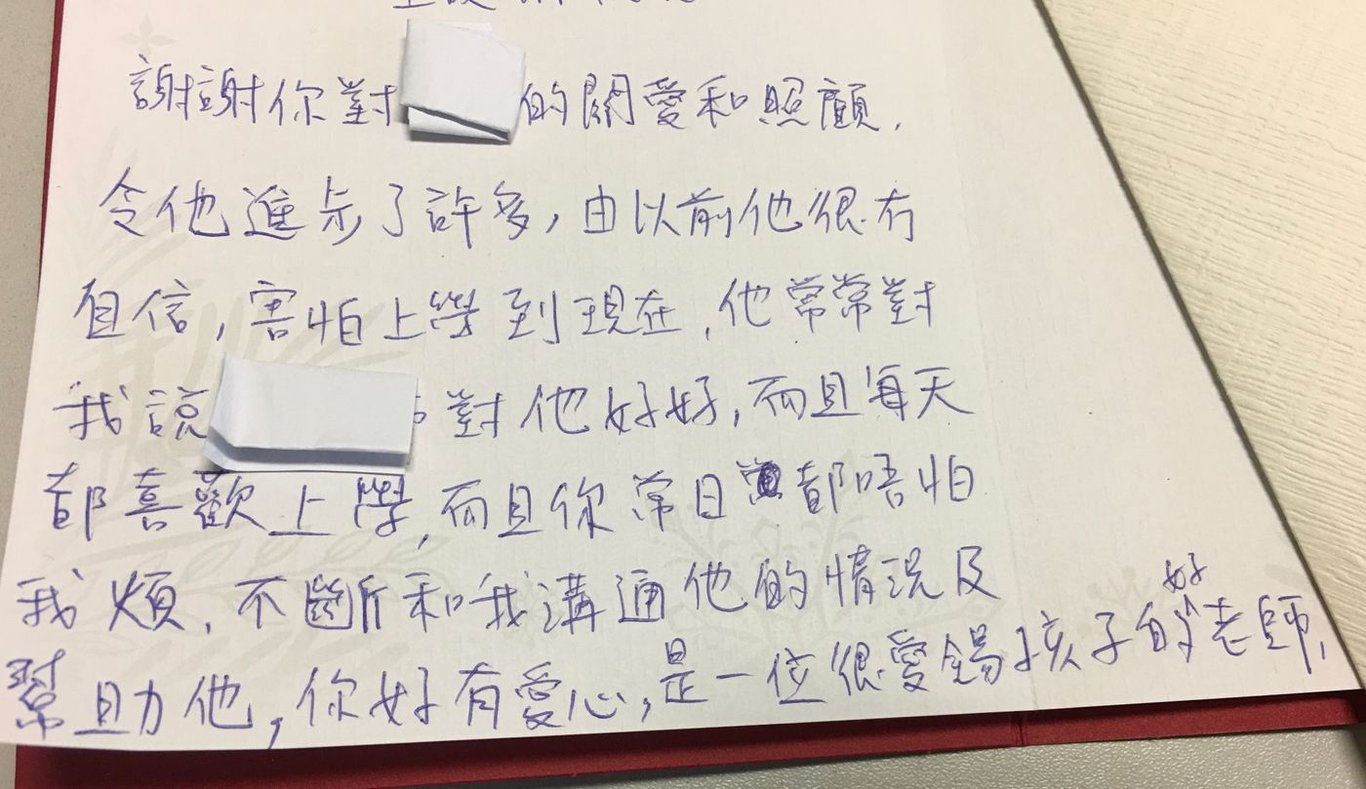 謝謝你對 的關愛和照顧,
令他進步了許多,由以前他很冇
自信,害怕上學到現在,他常常對
我說 對他好好,而且每天
都喜歡上學,而且你常日都唔怕
我煩,不斷和我溝通他的情況及
幫助他,你好有愛心,是一位很愛錫孩子的好老師,